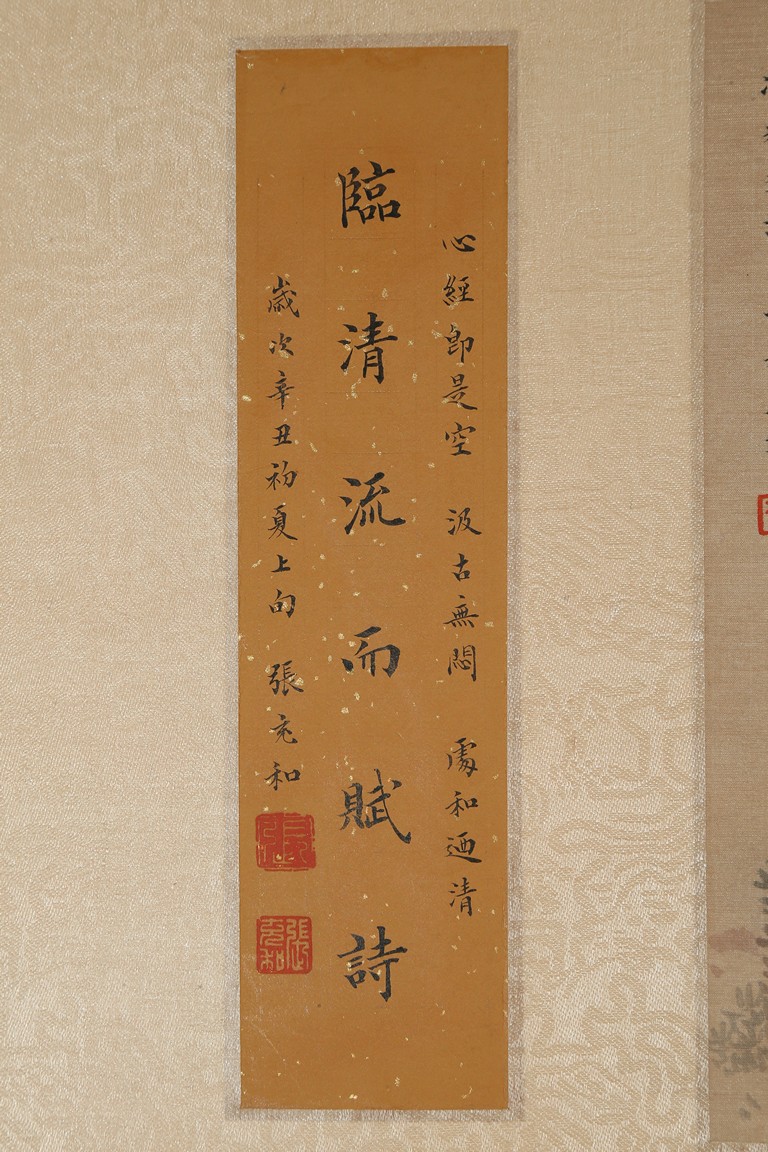 心經即是空 汲古無悶 處和迺清
臨清流而賦詩
歲次辛丑初夏上旬 張充和
張充和